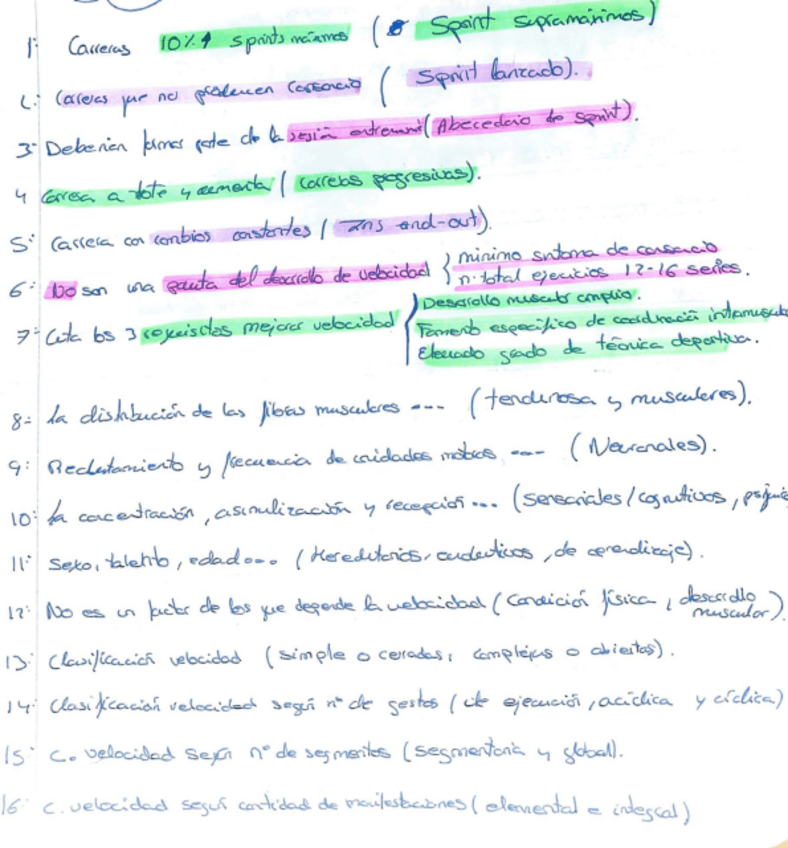 1: Carreras 10% ↑ sprints máximos ( Sprint supramáximos)
2: Carreras que no producen cansancio ( Sprint lanzado).
3: Deberían formar parte de la sesión entrenami (Abecedario de sprint).
4 Carrera a trote y aumenta ( carreras progresivas).
5: Carrera con cambios constantes ( Ins and-out).
6: No son una pauta del desarrollo de velocidad { minimo sintoma de cansancio
nº total ejercicios 12-16 series.
7: Cita los 3 requisitos mejorar velocidad { Desarrollo muscular amplio.
Fomento específico de coordinación intramuscular
Elevado grado de técnica deportiva.
8: La distribución de las fibras musculares --- (tendinosa y musculares).
9: Reclutamiento y frecuencia de unidades motoras --- ( Neuronales).
10: La concentración, asimilización y recepción... (sensoriales/cognitivos, psíqui
11: Sexo, talento, edad... (Hereditarios, evolutivos, de aprendizaje).
12: No es un factor de los que depende la velocidad ( Condición física, desarrollo muscular)
13: Clasificación velocidad (simple o cerradas, complejas o abiertas).
14: Clasificación velocidad según nº de gestos ( de ejecución, acíclica y cíclica)
15: C. velocidad según nº de segmentos (segmentaria y global).
16: C. velocidad según cantidad de manifestaciones ( elemental e integral)